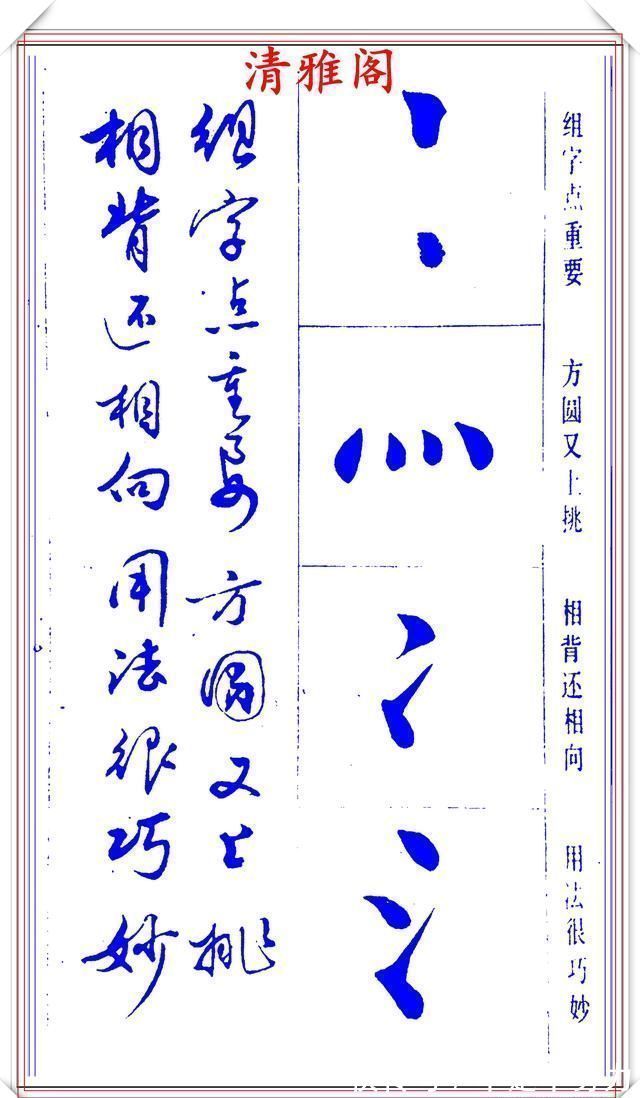 清雅阁
组字点重要 方圆又上挑 相背还相向 用法很巧妙
组字点重要 方圆又上挑
相背还相向 用法很巧妙